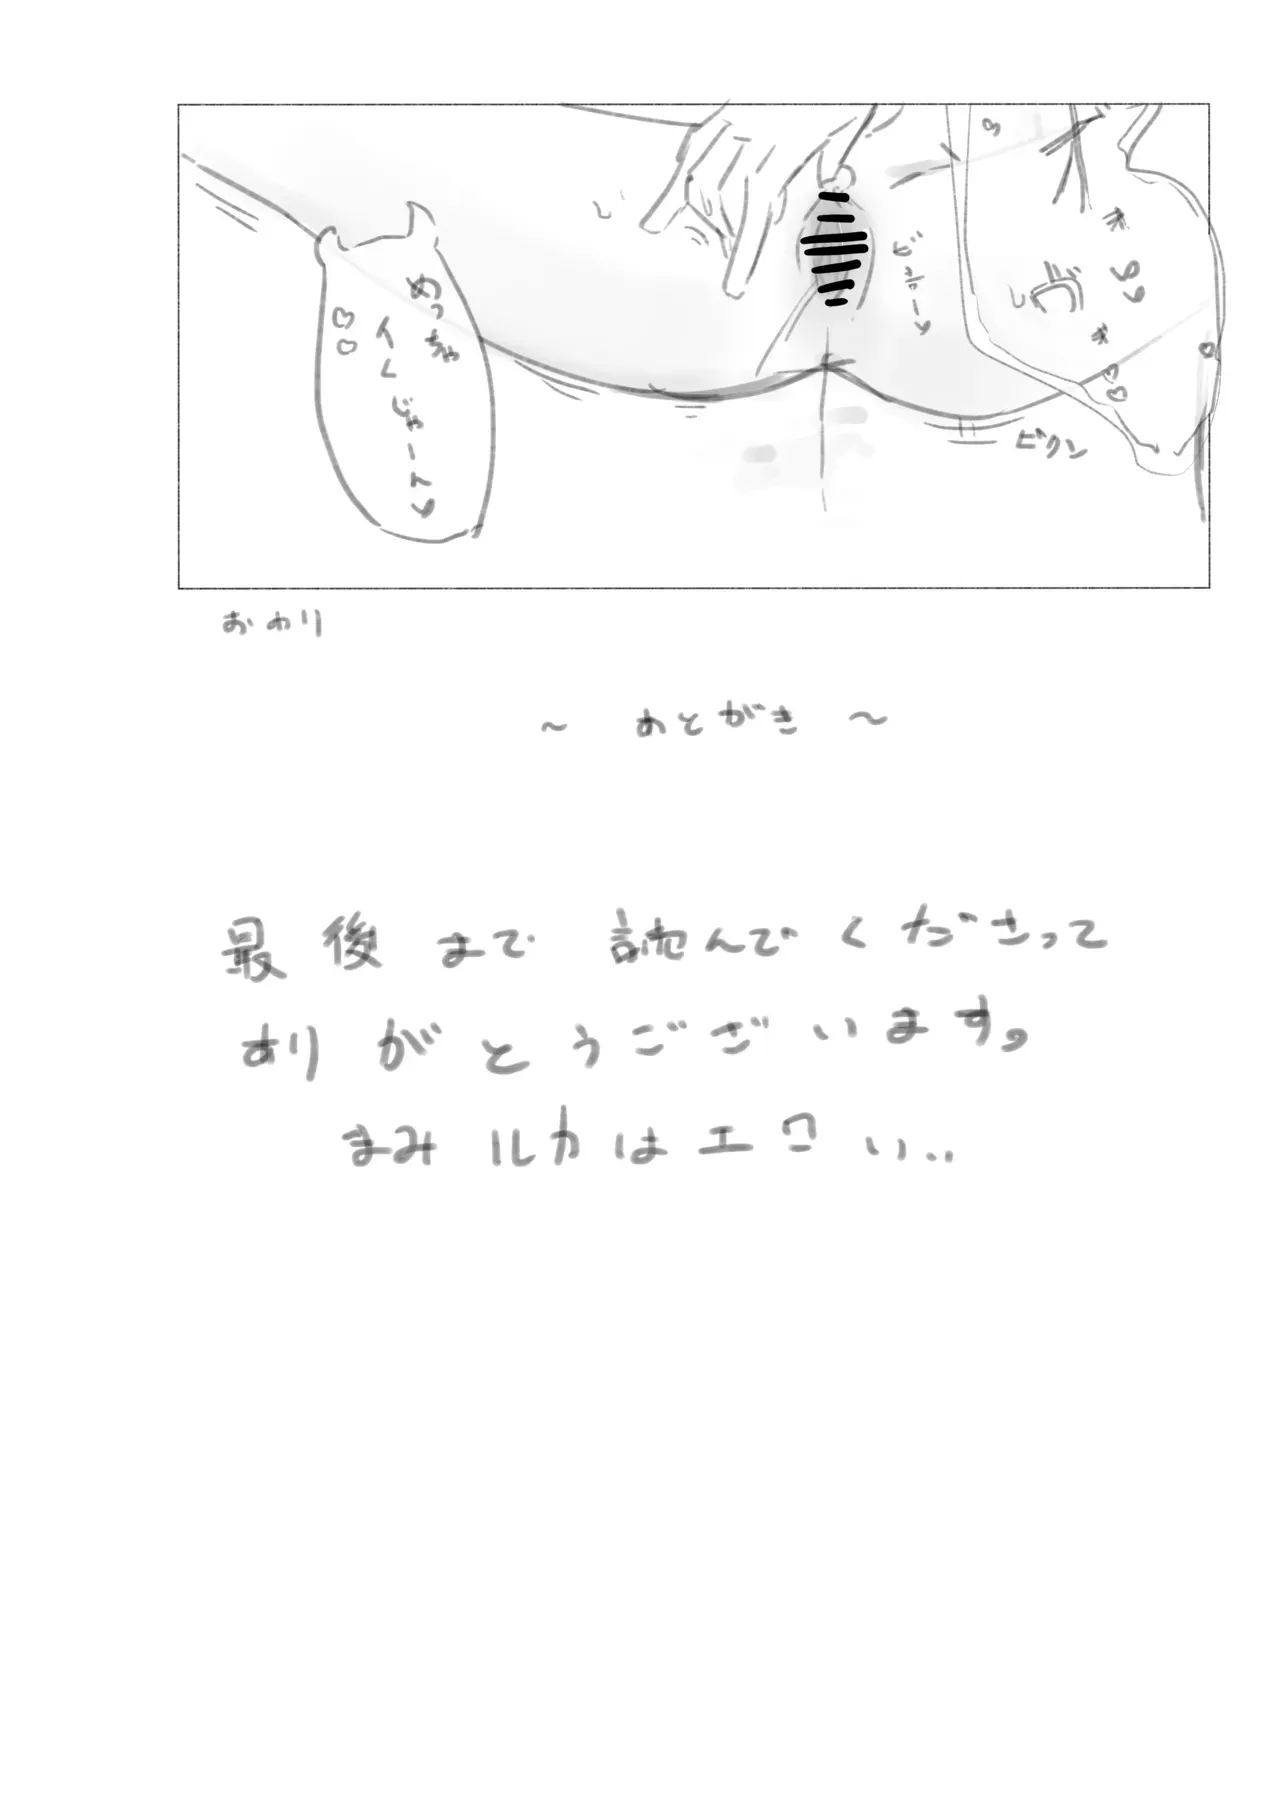 ビュー
ビクン
めっちゃ
イくじゃーん
おわり
～ あとがき ～
最後まで読んでくださって
ありがとうございます。
まみルカはエロい..